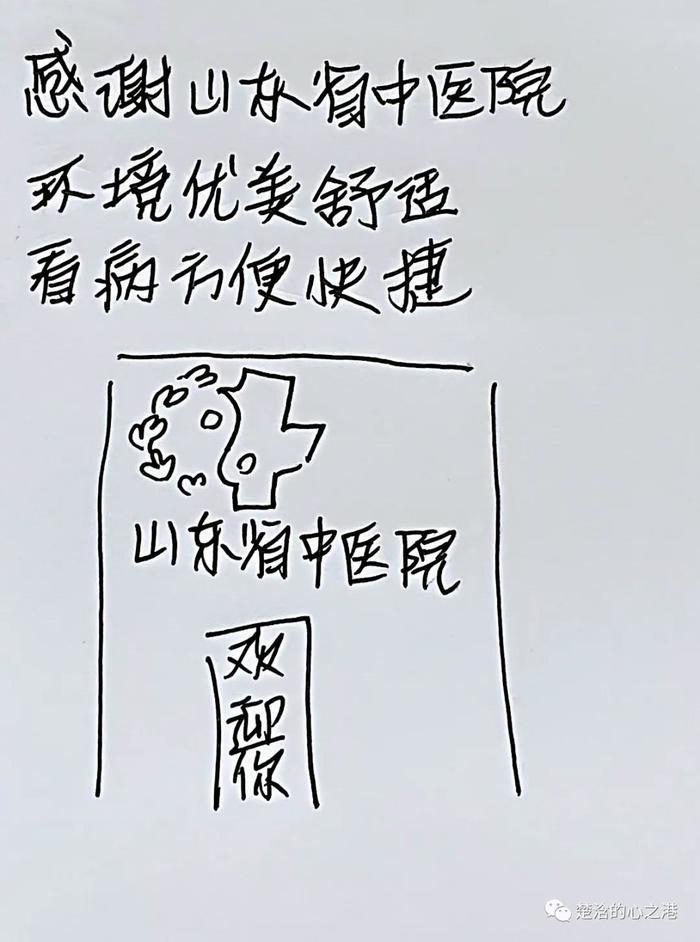 感谢山东省中医院
环境优美舒适
看病方便快捷
山东省中医院
欢
迎
你
楚洽的心之港